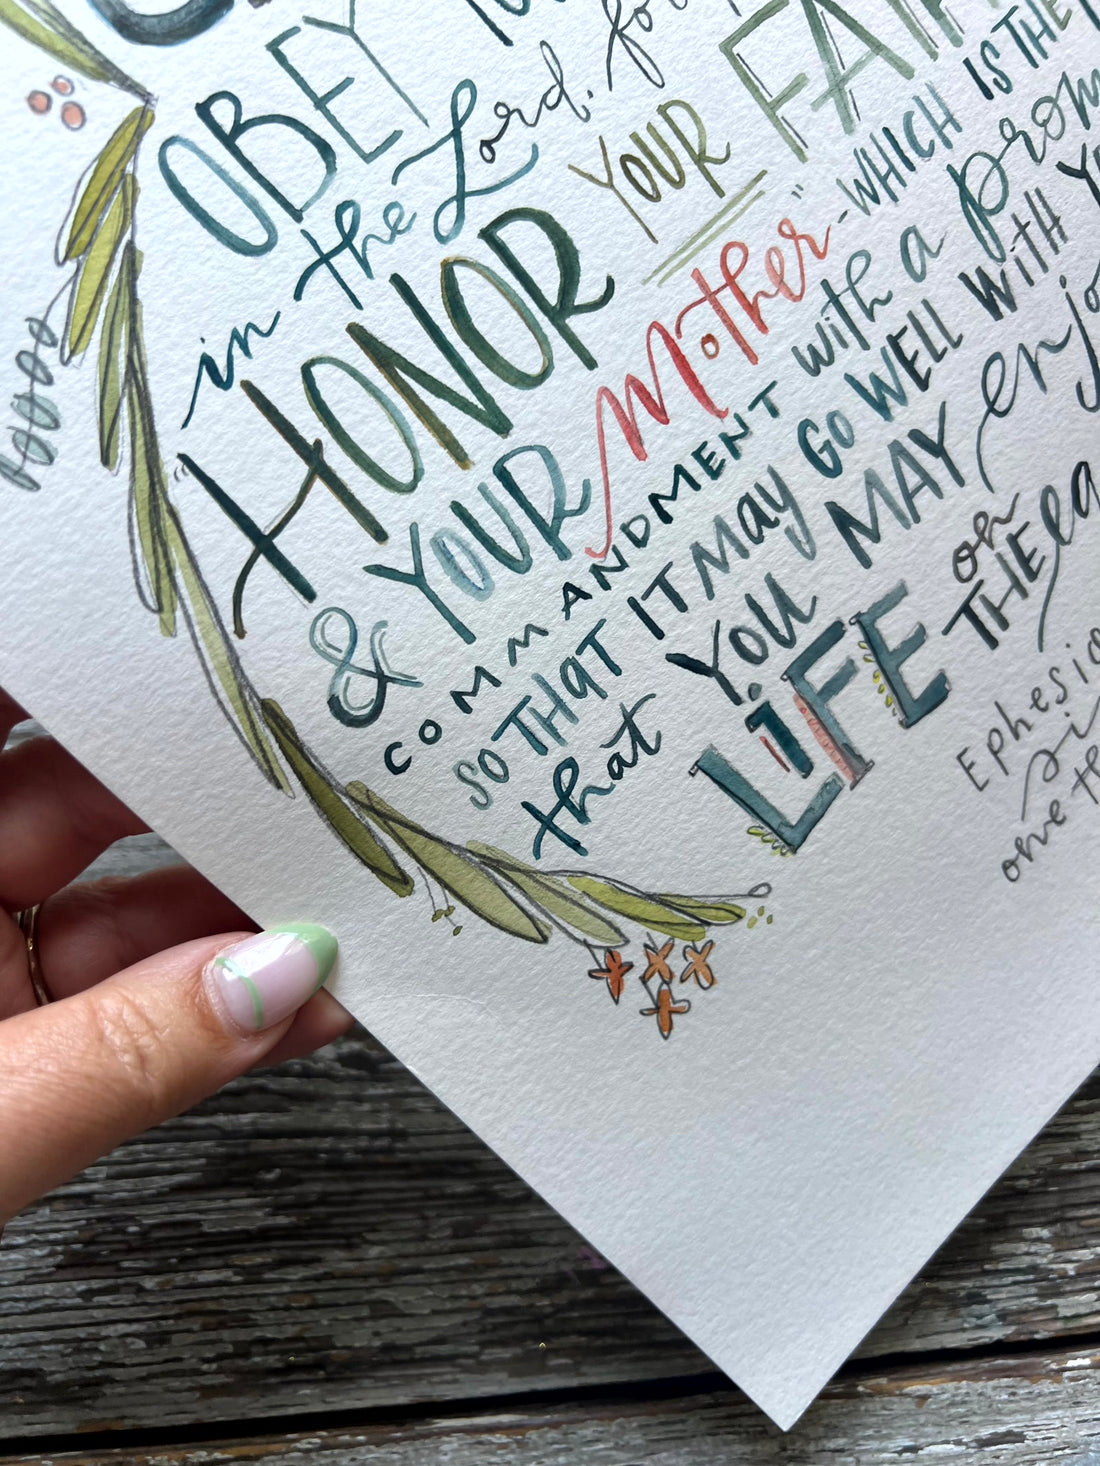 OBEY
in the Lord. for
HONOR YOUR
& YOUR Mother" - WHICH IS THE
COMMANDMENT with a
SO THAT IT MAY GO WELL WITH
that YOU MAY
LIFE on
THE
one